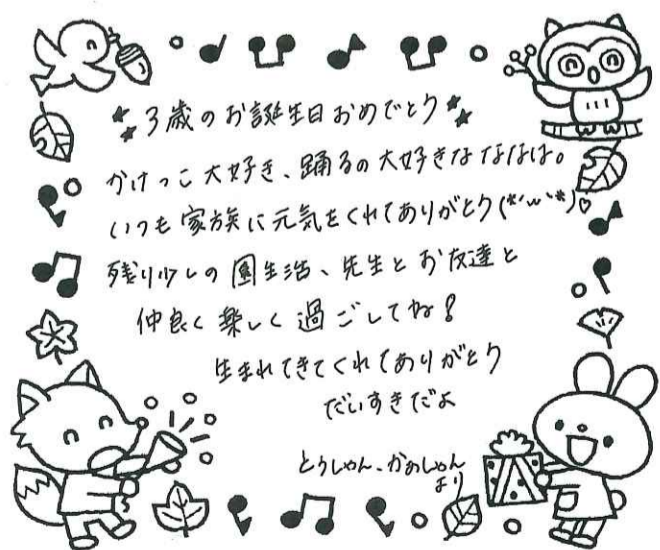 3歳のお誕生日おめでとう
かけっこ大好き、踊るの大好きなななは。
いつも家族に元気をくれてありがとう(*'ω'*)♡
残り少しの園生活、先生とお友達と
仲良く楽しく過ごしてね!
生まれてきてくれてありがとう
だいすきだよ
とうしゃん、かあしゃん
より